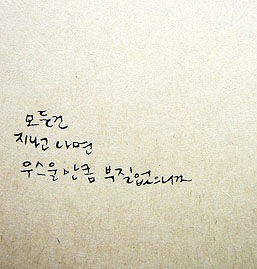 모든건
지나고 나면
우스울 만큼 부질없으니까